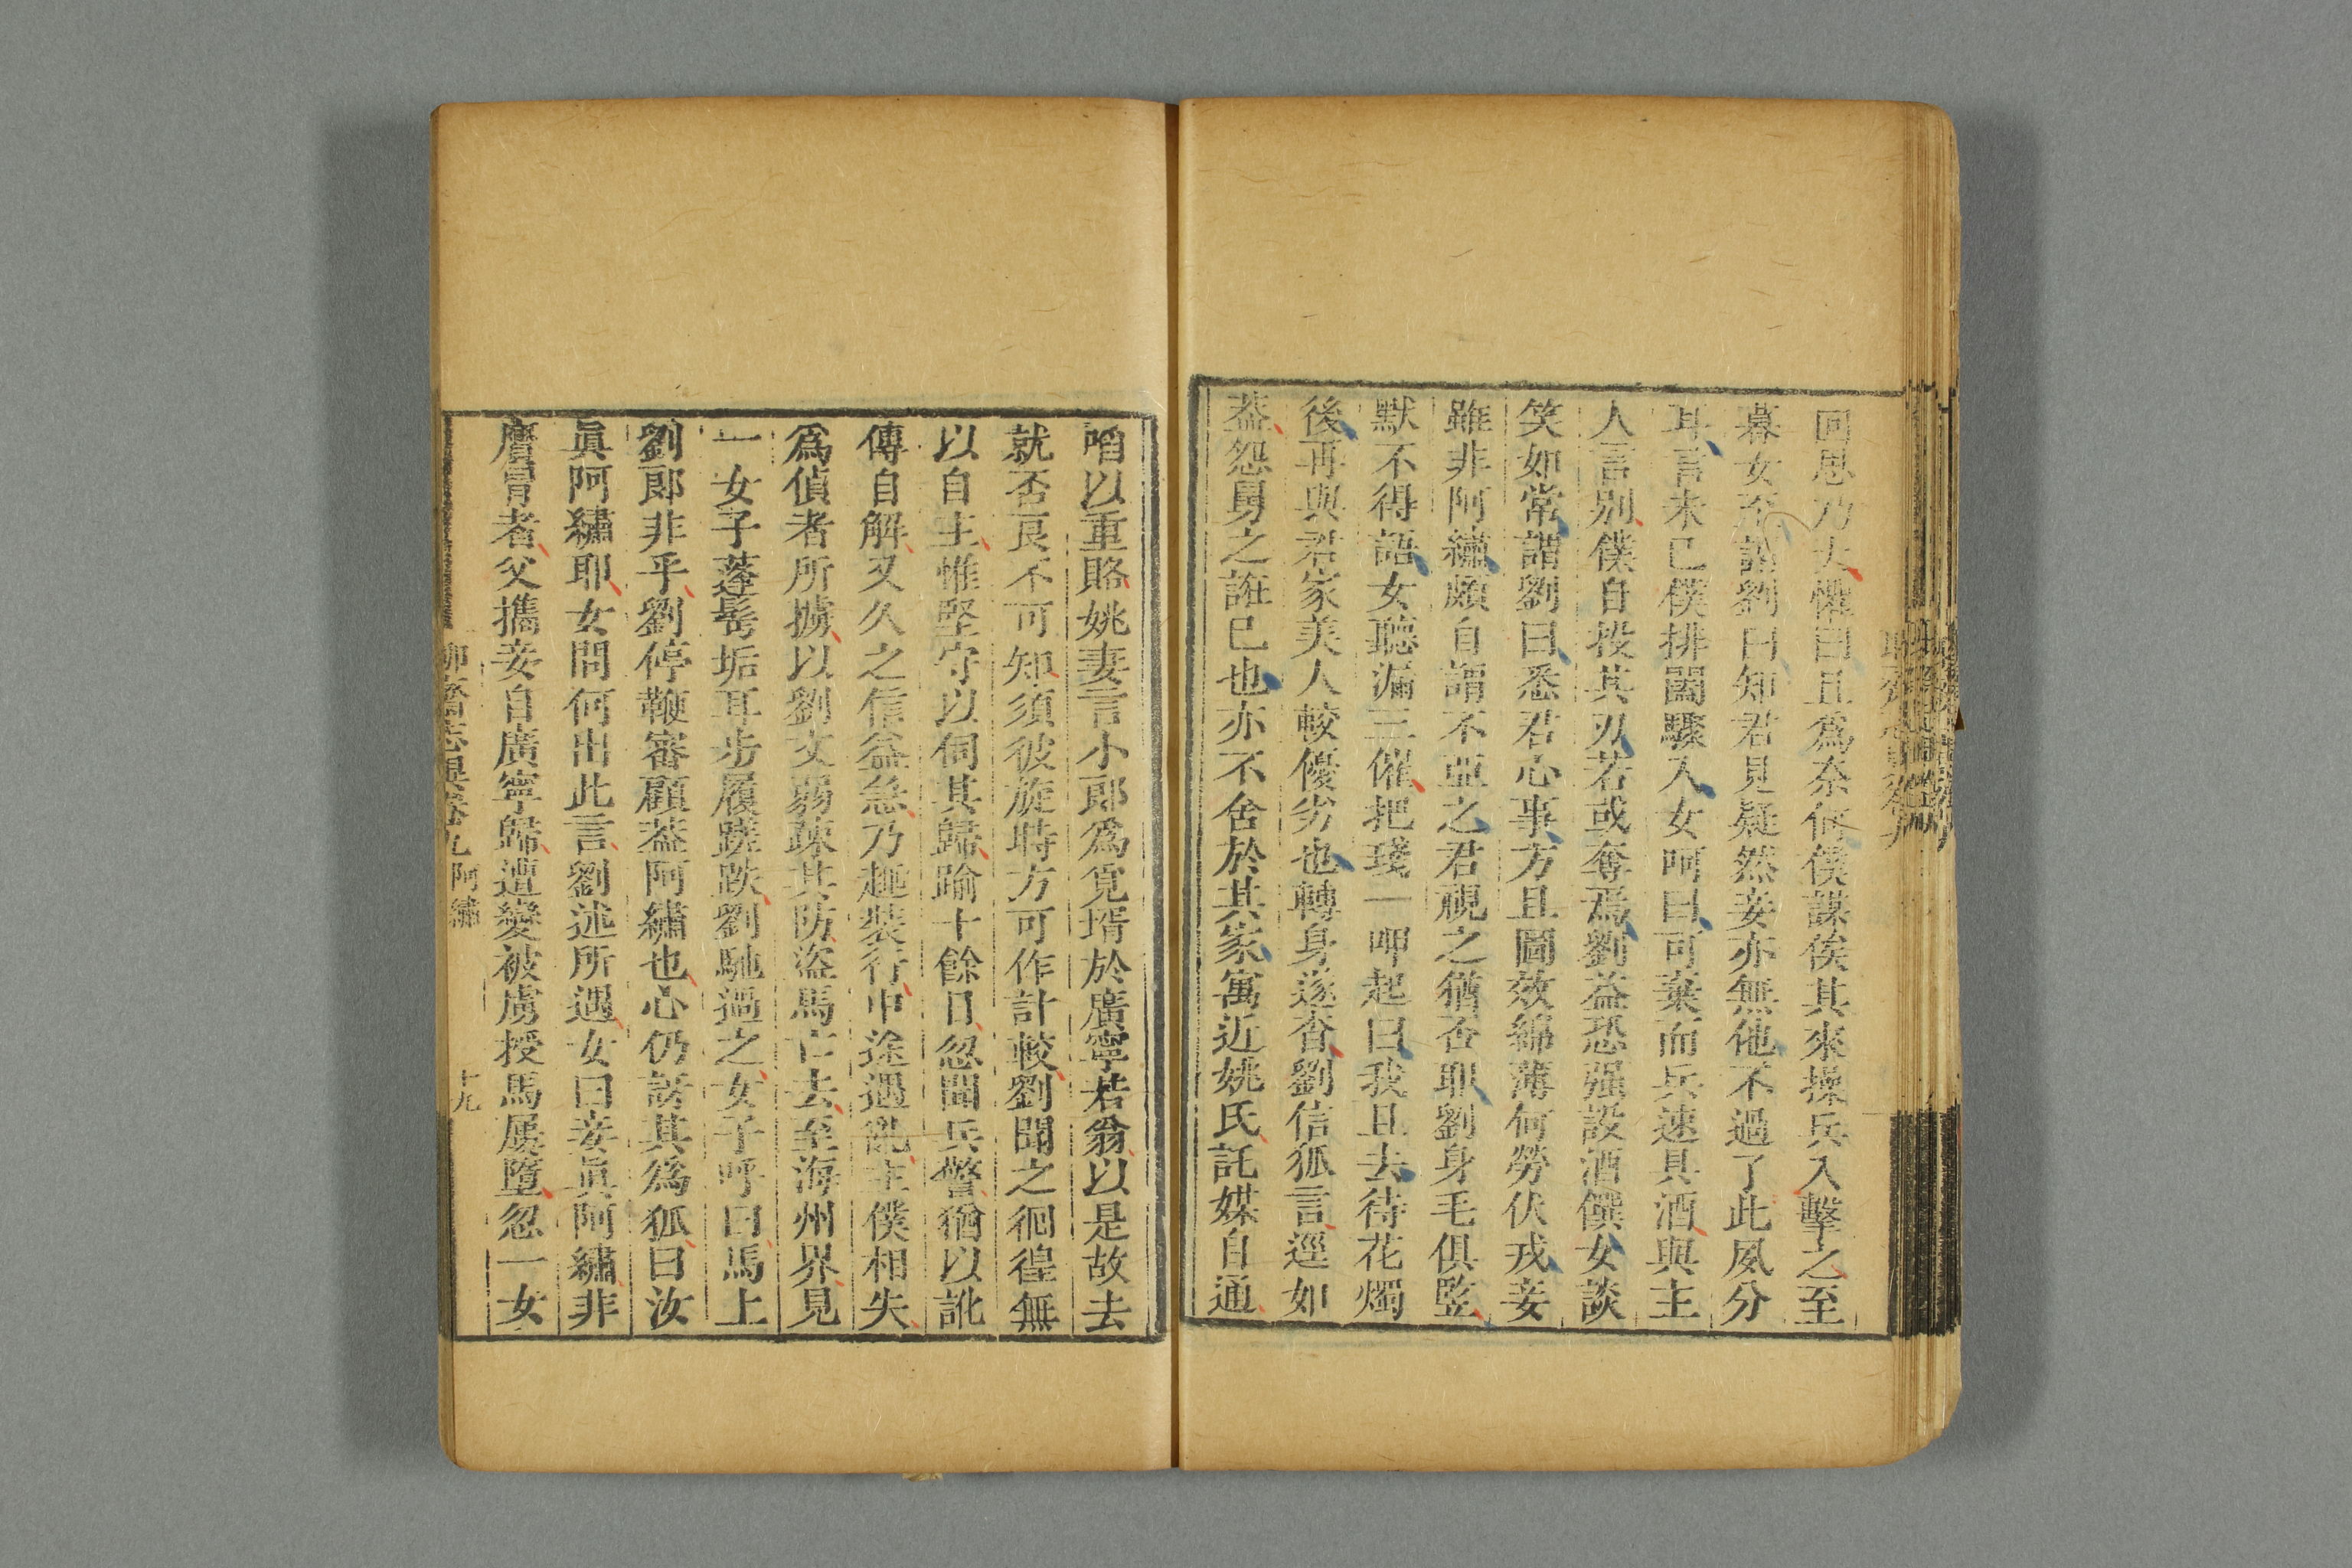 回思乃大懼曰且爲奈何僕謀俟其來操兵入擊之至
暮女至謂劉曰知君見疑然妾亦無他不過了此夙分
耳言未已僕排闥驟入女呵曰可棄而兵速具酒與主
人言别僕自投其刃若或奪焉劉益恐强設酒饌女談
笑如常謂劉曰悉君心事方且圖效綿薄何勞伏戎妾
雖非阿繡頗自謂不亞之君視之猶否耶劉身毛俱竪
默不得語女聽漏三催把琖一呷起曰我且去待花燭
後再與君家美人較優劣也轉身遂杳劉信狐言逕如
葢怨舅之誑已也亦不舍於其家寓近姚氏託媒自通
啗以重賂姚妻言小郎爲覓壻於廣寧若翁以是故去
就否良不可知須彼旋時方可作計較劉聞之徊徨無
以自主惟堅守以伺其歸踰十餘日忽聞兵警猶以訛
傳自解又久之信益急乃趣裝行中途遇亂主僕相失
爲偵者所擄以劉文弱疎其防盜馬亡去至海州界見
一女子蓬髩垢耳步履蹉跌劉馳過之女子呼曰馬上
劉郎非乎劉停鞭審顧葢阿繡也心仍訝其爲狐曰汝
眞阿繡耶女問何出此言劉述所遇女曰妾眞阿繡非
贋冒者父攜妾自廣寧歸遭變被虜授馬屢墮忽一女
聊齋志異卷九 阿繡 十九